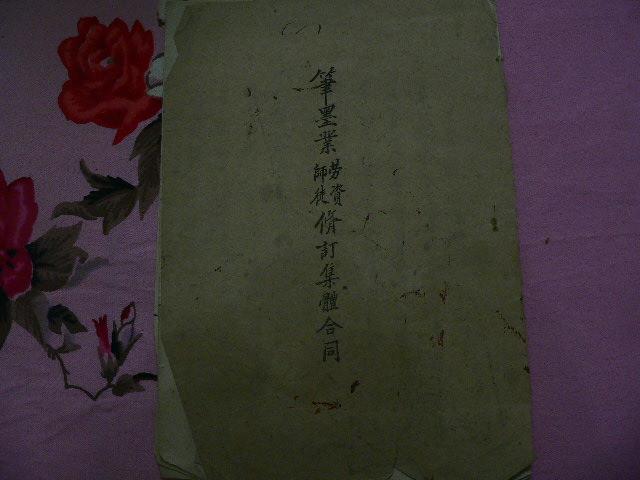 (一)
筆墨業勞資師徒脩訂集體合同